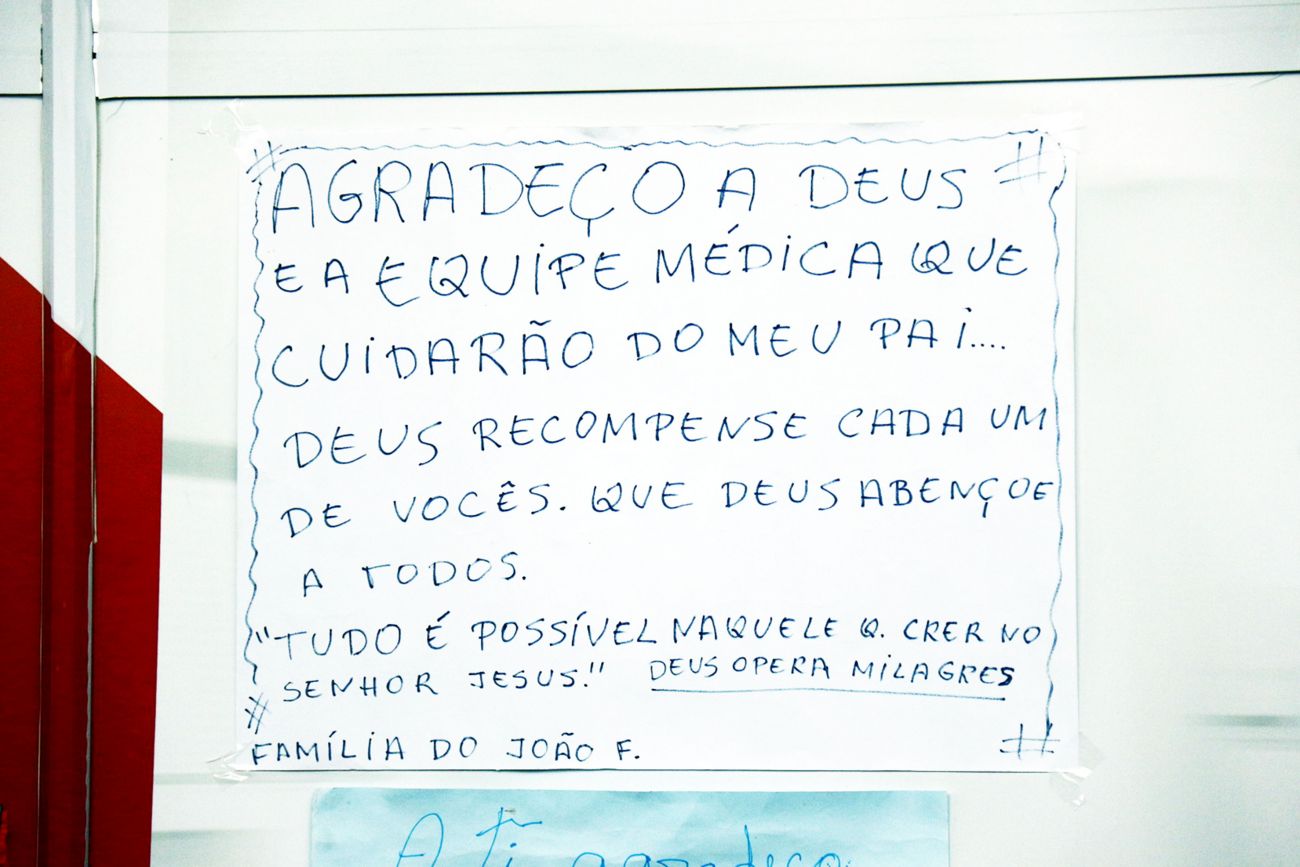 # AGRADEÇO A DEUS #
E A EQUIPE MÉDICA QUE
CUIDARÃO DO MEU PAI....
DEUS RECOMPENSE CADA UM
DE VOCÊS. QUE DEUS ABENÇOE
A TODOS.
"TUDO É POSSÍVEL NAQUELE Q. CRER NO
SENHOR JESUS." DEUS OPERA MILAGRES
#
FAMÍLIA DO JOÃO F. #
A ti agradeço